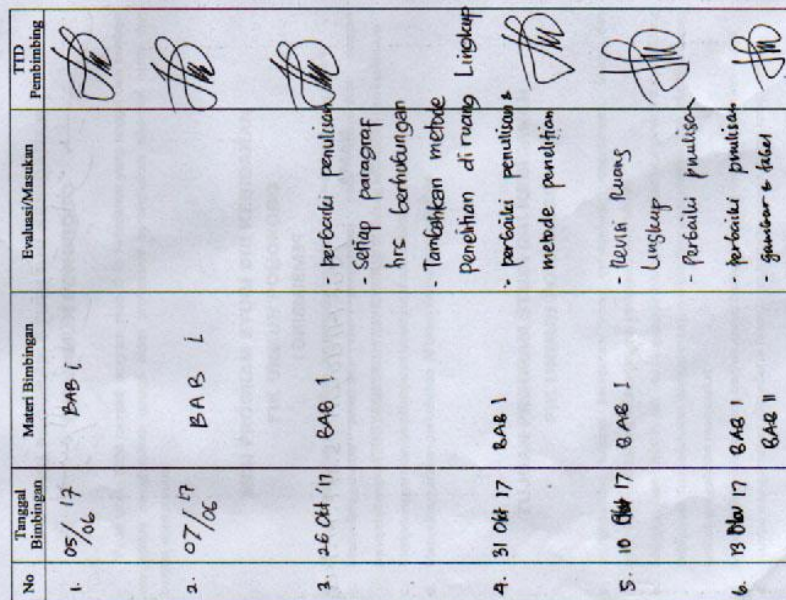 No Tanggal Bimbingan Materi Bimbingan Evaluasi/Masukan TTD Pembimbing
1. 05/06 17 BAB I
2. 07/06 17 BAB I
3. 26 Okt '17 BAB I - perbaiki penulisan
- Setiap paragraf
hrs berhubungan
- Tambahkan metode
penelitian di ruang Lingkup
4. 31 Okt 17 BAB I - perbaiki penulisan &
metode penelitian
5. 10 17 BAB I - Revisi Ruang
Lingkup
- Perbaiki penulisan
6. 13 Nov 17 BAB I - perbaiki penulisan
BAB II - gambar & tabel